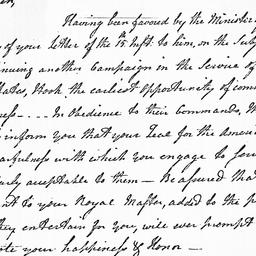 Having been favored by the Minister
of your Letter of the 15th Inst. to him, on the Sub
inuing another Campaign in the Service of
tates, I took the earliest opportunity of com
ress - - - - In Obedience to their Commands, 
inform you that your Zeal for the Ameri
earfulness with which you engage to
rly acceptable to them — Be assured that
nt to your Royal Master, added to the p
they entertain for you, will ever prompt
ote your happiness & Honor —